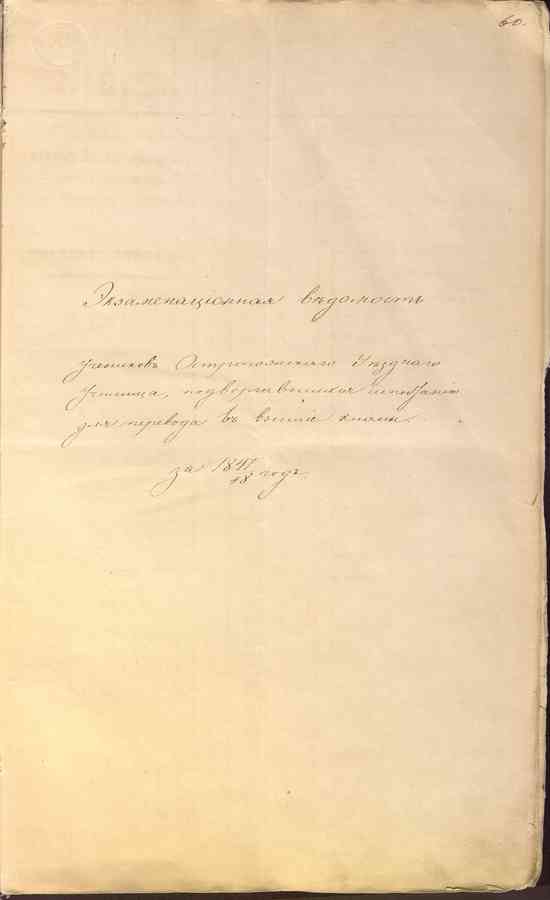 60.
Экзаменаціонная вѣдомость
учениковъ Острогожскаго Уѣзднаго
Училища, подвергавшихся испытанію
для перевода въ высшіе классы.
за 1847/48 годъ.